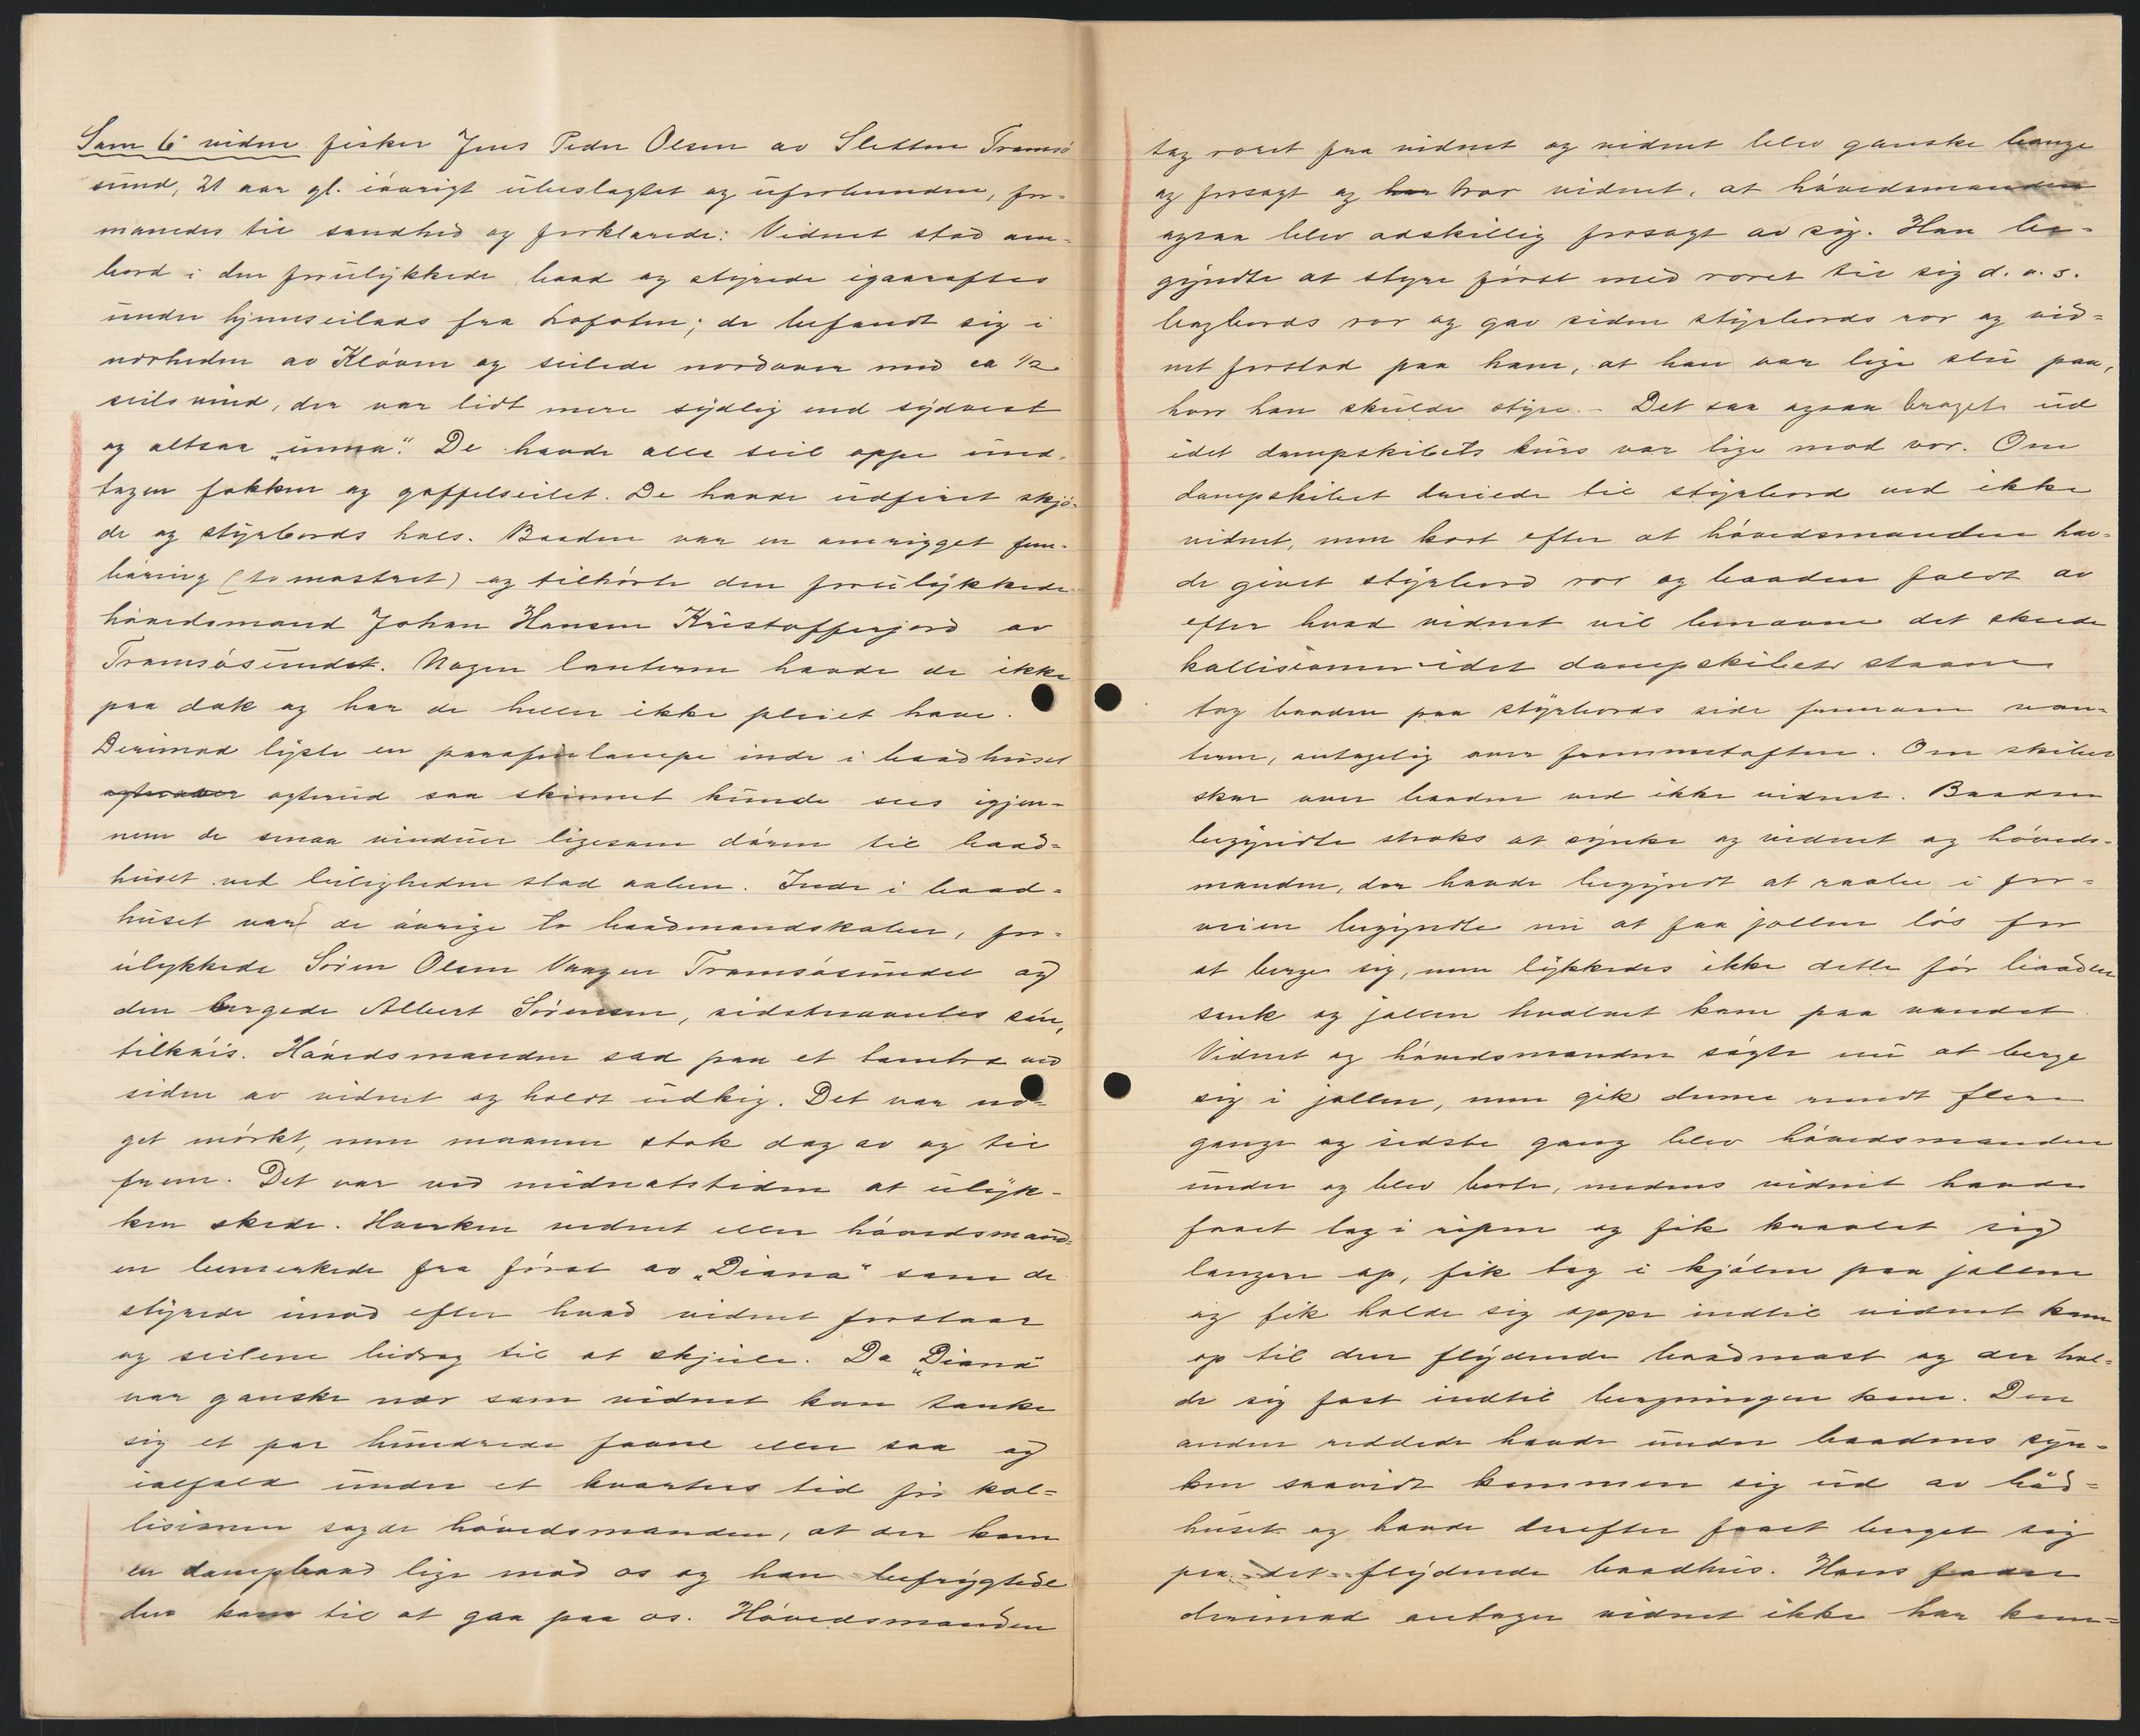 Som 6' vidne fisker Jens Peder Olsen av Sletten Tromsö
sund, 21 aar gl. iövrigt ubeslegtet og uforbunden, for-
manedes til sandhed og forklarede: Vidnet stod om-
bord i den forulykkede baad og styrede igaaraftes
under hjemseilads fra Lofoten; de befandt sig i
nærheden av Klöven og seilede nordover med ca 1/2
seils vind, der var lidt mere sydlig end sydvest
og altsaa „unna". De havde alle seil oppe und-
tagen fokken og gaffelseilet. De havde udfiret skjö-
de og styrbords hals. Baaden var en omrigget fem-
böring (to mastret) og tilhörte den forulykkede
hövedsmand Johan Hansen Kristofferjord av
Tromsösundet. Nogen lanterne havde de ikke
paa dæk og har de heller ikke pleiet have.
Derimod lyste en parafinlampe inde i baadhuset
agterud saa skinnet kunde sees igjen-
nem de smaa vinduer ligesom dören til baad-
huset ved leiligheden stod aaben. Inde i baad-
huset var de övrige to baadmandskaber, for-
ulykkede Sören Olsen Vangen Tromsösundet og
den bergede Albert Sörensen, sidstnævntes sön,
tilköis. Hövedsmanden sad paa et ved
siden av vidnet og holdt udkig. Det var no-
get mörkt, men maanen stak dog av og til
frem. Det var ved midnatstiden at ulyk-
ken skede. Hverken vidnet eller hövedsmand-
en bemerkede fra först av „Diana" som de
styrede imod efter hvad vidnet forstaar
og seilene bidrog til at skjule. Da „Diana"
var ganske nær som vidnet kan tænke
sig et par hundrede favne eller saa og
ialfald under et kvarters tid för kol-
lisionen sagde hövedsmanden, at der kom
en dampbaad lige mod os og han befrygtede
den kom til at gaa paa os. Hövedsmanden
tog roret fra vidnet og vidnet blev ganske bange
og forsagt og tror vidnet, at hövedsmanden
ogsaa blev adskillig forsagt av sig. Han be-
gyndte at styre först med roret til sig d. v. s.
bagbords ror og gav siden styrbords ror og vid-
net forstod paa ham, at han var lige paa,
hvor han skulde styre. - Det saa ogsaa braget ud
idet dampskibets kurs var lige mod vor. Om
dampskibet dreiede til styrbord ved ikke
vidnet, men kort efter at hövedsmanden hav-
de givet styrbord ror og baaden faldt av
efter hvad vidnet vil bemærke det skede
kollisionen idet dampskibets stævn
tog baaden paa styrbords side foran van-
terne, antagelig over fremmetoften. Om skibet
skar over baaden ved ikke vidnet. Baaden
begyndte straks at synke og vidnet og höveds-
manden, der havde begyndt at raabe i for-
veien begyndte nu at faa jollen lös for
at berge sig, men lykkedes ikke dette för baaden
sank og jollen hvalvet kom paa vandet.
Vidnet og hövedsmanden sögte nu at berge
sig i jollen, men gik denne rundt flere
gange og sidste gang blev hövedsmanden
under og blev borte, medens vidnet havde
faaet tag i ripen og fik kravlet sig
længere op, fik tag i kjölen paa jollen
og fik holde sig oppe indtil vidnet kom
op til den flydende baadmast og der hol-
de sig fast indtil bergningen kom. Den
anden reddede havde under baadens syn-
ken saavidt kommen sig ud av baad-
huset og havde derefter faaet berget sig
paa det flydende baadhus. Hans fader
derimod antager vidnet ikke har kom-